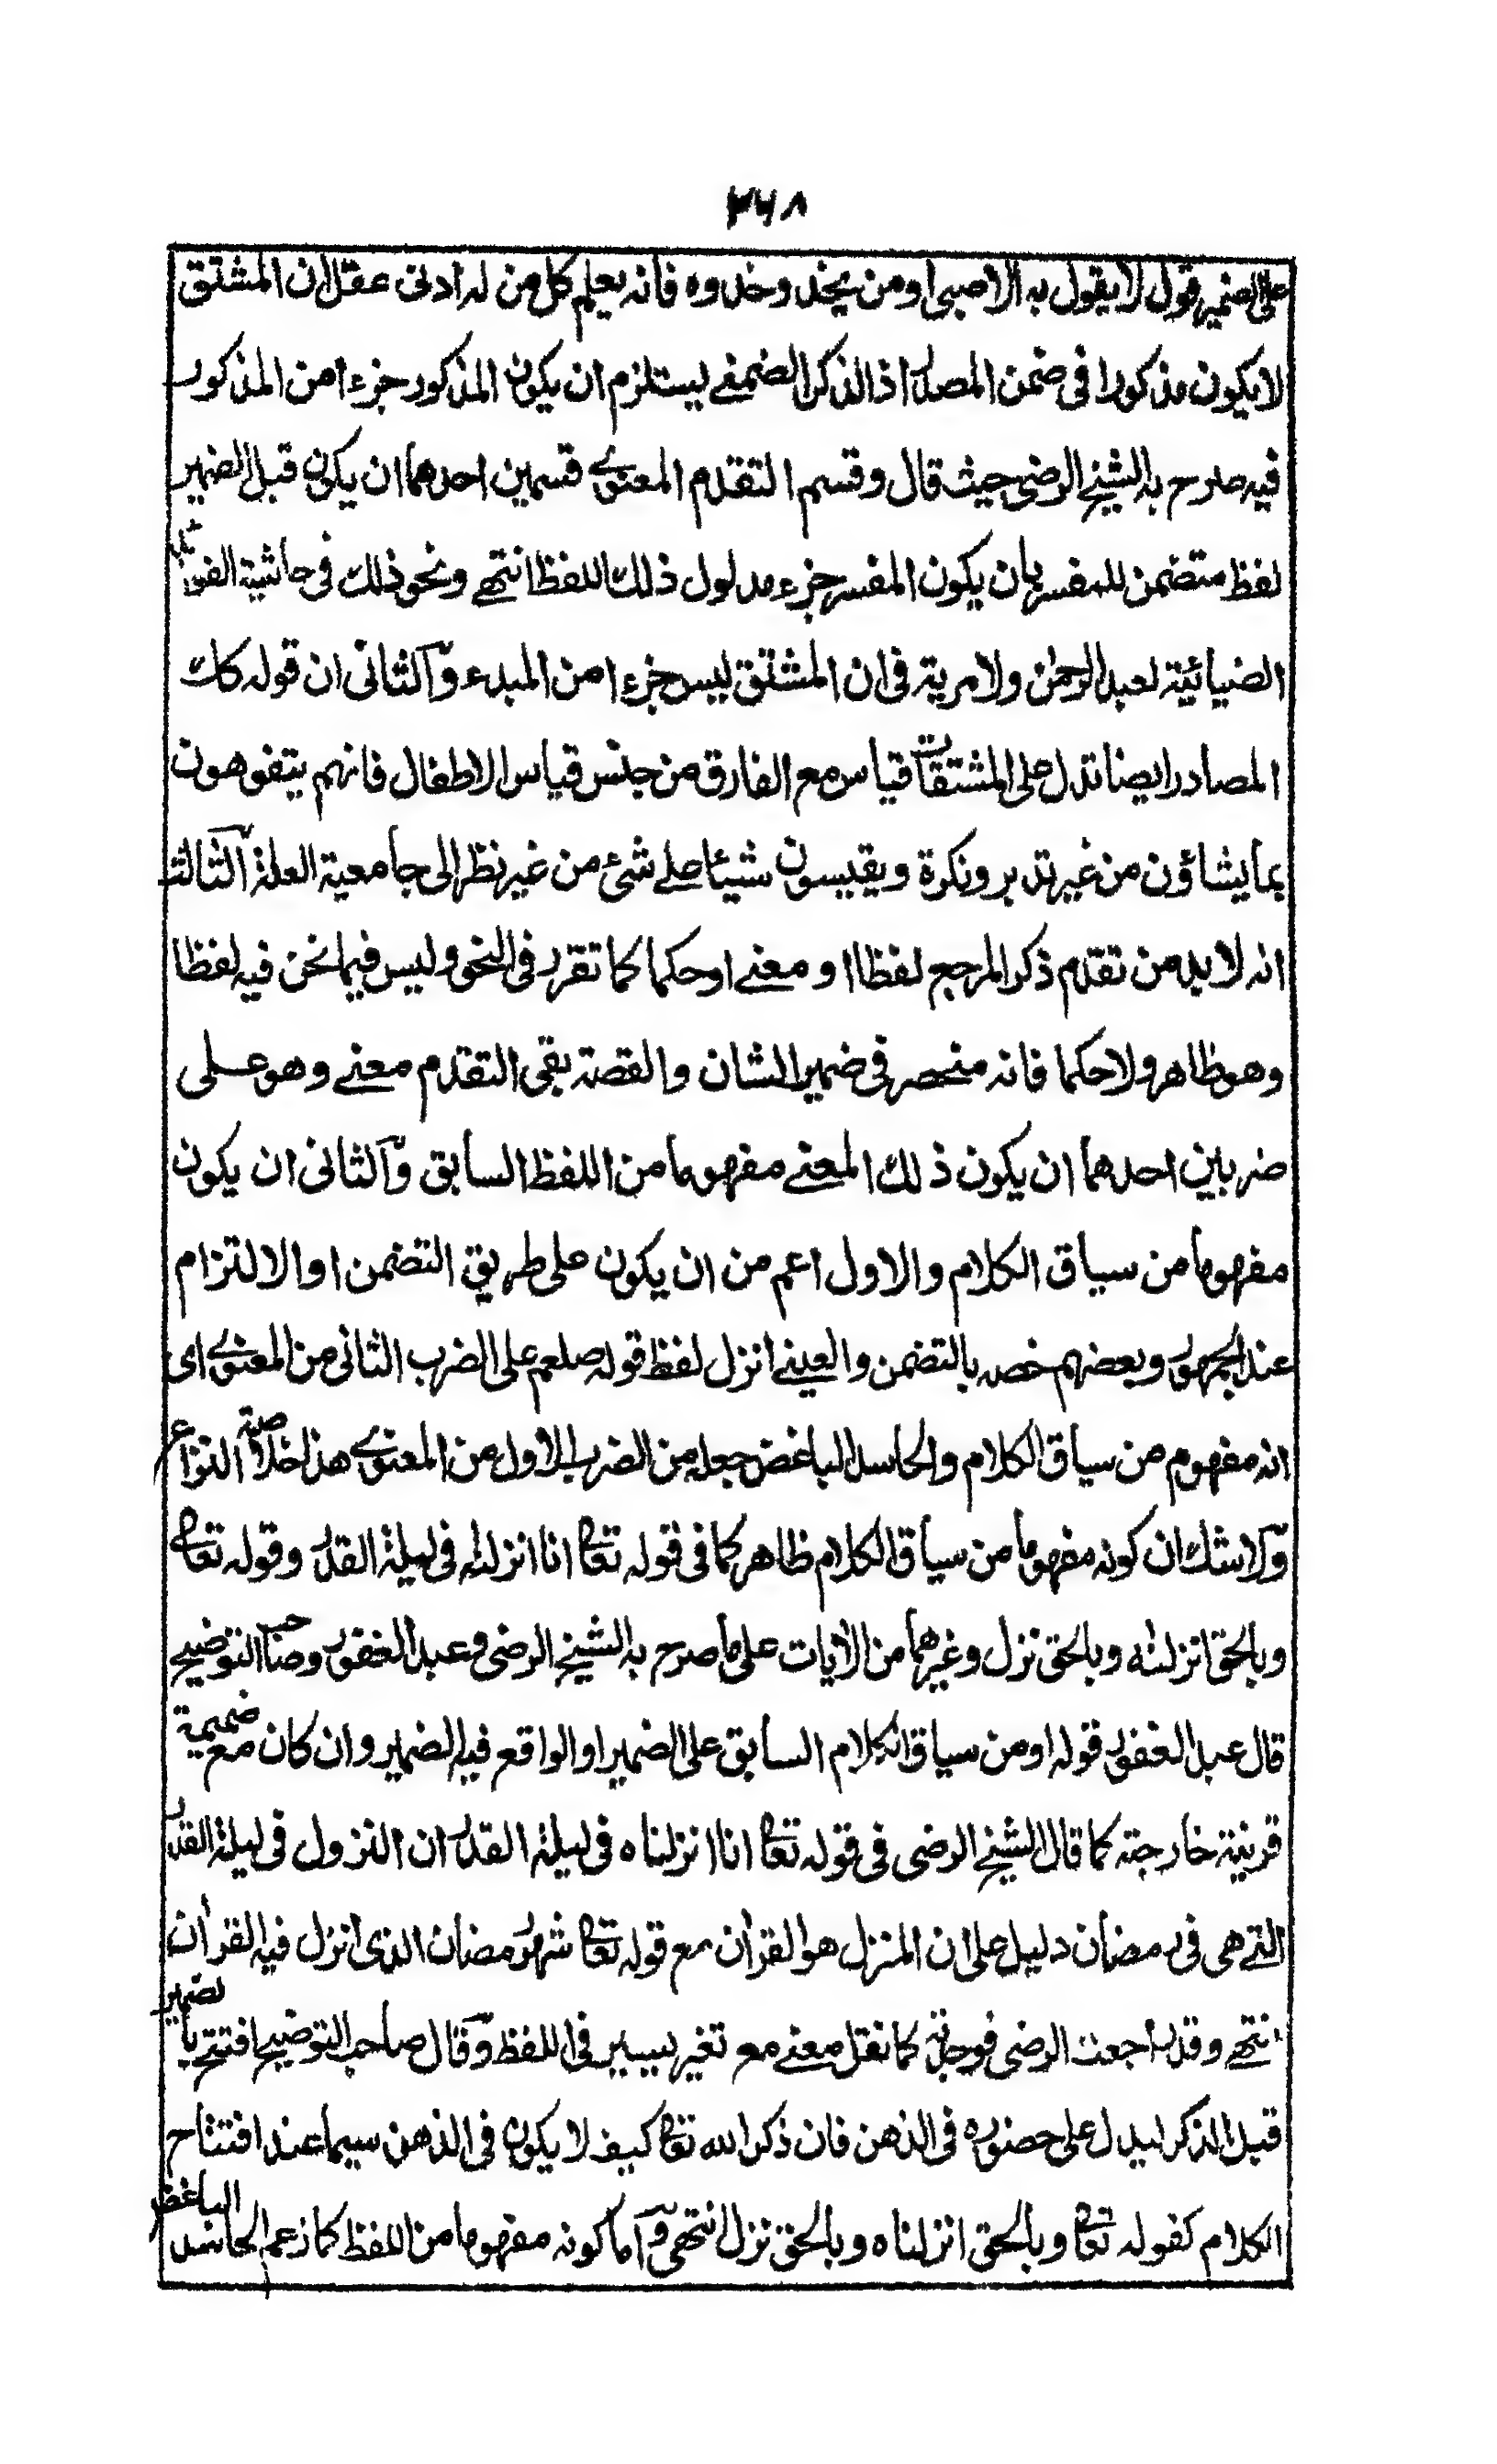 ٢٦٨
على الضمير قول لا يقول به الا صبي او من يخذ وخذوه فانه يعلم كل من له ادنى عقل ان المشتق
لا يكون مذكورا في ضمن المصدر اذ الذكر الضمني يستلزم ان يكون المذكور جزءا من المذكور
فيه صرح به الشيخ الرضى حيث قال وقسم التقدم المعنوى قسمين احدهما ان يكون قبل الضمير
لفظ متضمن للمفسر بان يكون المفسر جزء مدلول ذلك اللفظ انتهى ونحو ذلك في حاشية الفوائد
الضيائية لعبد الرحمن ولا مرية في ان المشتق ليس جزءا من المبدء والثانى ان قوله كك
المصادر ايضا تدل على المشتقات قياس مع الفارق من جنس قياس الاطفال فانهم يتفوهون
بما يشاؤن من غير تدبر ونكرة ويقيسون شيئا على شئ من غير نظر الى جامعية العلة الثالث
انه لا بد من تقدم ذكر المرجع لفظا او معنى او حكما كما تقرر في النحو وليس فيما نحن فيه لفظا
وهو ظاهر ولا حكما فانه منحصر في ضمير الشان والقصة بقى التقدم معنى وهو على
ضربين احدهما ان يكون ذلك المعنى مفهوما من اللفظ السابق والثانى ان يكون
مفهوما من سياق الكلام والاول اعم من ان يكون على طريق التضمن او الالتزام
عند الجمهور وبعضهم خصه بالتضمن والعينى انزل لفظ قوله صلعم على الضرب الثانى من المعنوى اى
انه مفهوم من سياق الكلام والحاسد الباغض جعله من الضرب الاول من المعنوى هذا خلاصة النزاع
ولا شك ان كونه مفهوما من سياق الكلام ظاهر كما في قوله تعا انا انزلنه في ليلة القدر وقوله تعا
وبالحق انزلنه وبالحق نزل وغيرهما من الايات على ما صرح به الشيخ الرضى وعبد الغفور وصاحب التوضيح
قال عبد الغفور قوله او من سياق الكلام السابق على الضمير او الواقع فيه الضمير وان كان مع ضميمة
قرينة خارجة كما قال الشيخ الرضى في قوله تعا انا انزلناه في ليلة القدر ان النزول في ليلة القدر
التى هى في رمضان دليل على ان المنزل هو القرأن مع قوله تعا شهر رمضان الذى انزل فيه القرأن
انتهى وقد راجعت الرضى فوجدته كما نقل معنى مع تغير يسير في اللفظ وقال صاحب التوضيح افتتح بالضمير
قبل الذكر ليدل على حضوره في الذهن فان ذكر الله تعا كيف لا يكون في الذهن سيما عند افتتاح
الكلام كقوله تعا وبالحق انزلناه وبالحق نزل انتهى واما كونه مفهوما من اللفظ كما زعم الحاسد الباغض